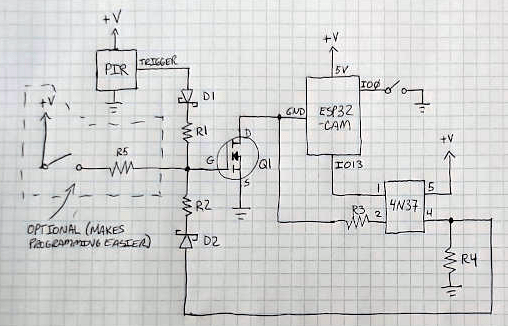 +V
PIR
TRIGGER
D1
R1
+V
R5
G
D
S
Q1
+V
5V
GND
ESP32
-CAM
IO0
IO13
+V
1
5
4N37
R3
2
4
R2
D2
R4
OPTIONAL (MAKES
PROGRAMMING EASIER)